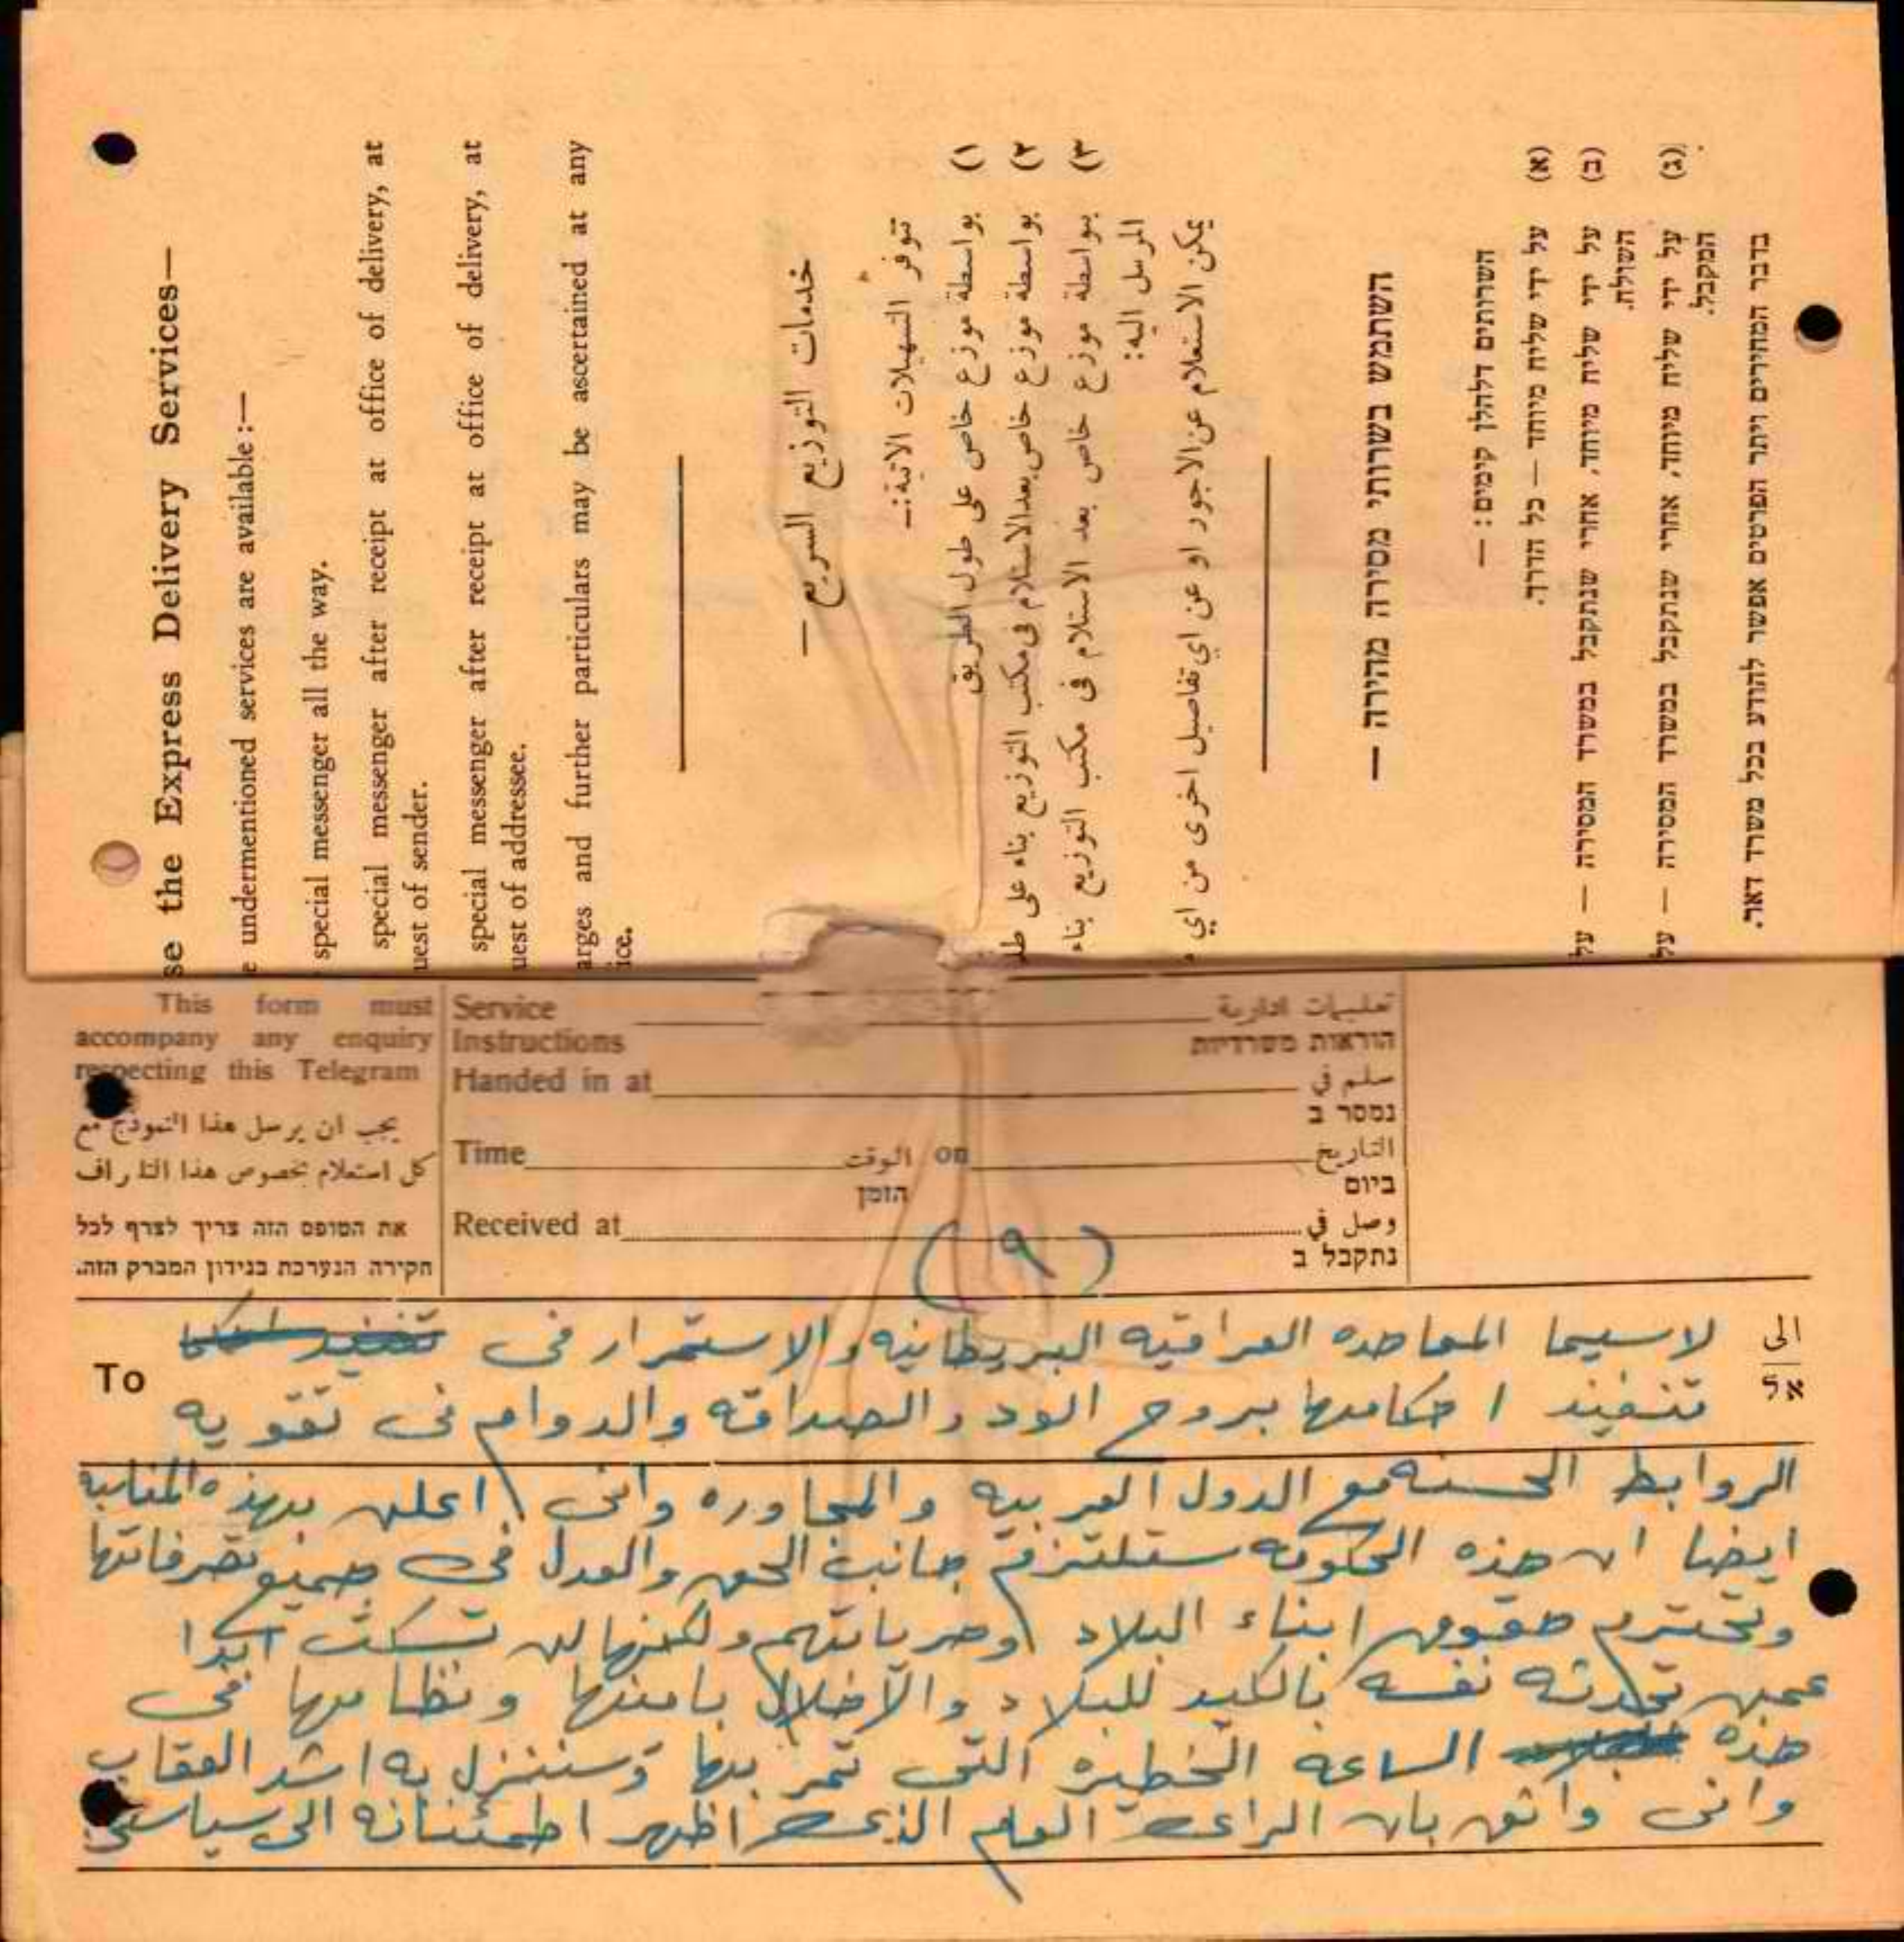 se the Express Delivery Services—
e undermentioned services are available :—
special messenger all the way.
special messenger after receipt at office of delivery, at
uest of sender.
special messenger after receipt at office of delivery, at
uest of addressee.
arges and further particulars may be ascertained at any
ice.
خدمات التوزيع السريع —
تتوفر التسهيلات الآتية:—
١) بواسطة موزع خاص على طول الطريق
٢) بواسطة موزع خاص بعد الاستلام في مكتب التوزيع بناء على طلـ
٣) بواسطة موزع خاص بعد الاستلام في مكتب التوزيع بناء
المرسل اليه:
يمكن الاستعلام عن الاجور او عن اي تفاصيل اخرى من اي
השתמש בשרותי מסירה מהירה —
השרותים דלהלן קימים: —
(א) על ידי שליח מיוחד — כל הדרך.
(ב) על ידי שליח מיוחד, אחרי שנתקבל במשרד המסירה — על
השולח.
(ג) על ידי שליח מיוחד, אחרי שנתקבל במשרד המסירה — על
המקבל.
בדבר המחירים ויתר הפרטים אפשר להודע בכל משרד דאר.
This form must
accompany any enquiry
respecting this Telegram
يجب ان يرسل هذا النموذج مع
كل استعلام بخصوص هذا التلغراف
את הטופס הזה צריך לצרף לכל
חקירה הנערכת בנידון המברק הזה.
Service تعليمات ادارية
Instructions הוראות משרדיות
Handed in at سلم في
נמסר ב
Time الوقت on التاريخ
הזמן ביום
Received at وصل في
נתקבל ב
(٩)
To الى
אל
لاسيما المعاهده العراقيه البريطانيه والاستمرار فى تنفيذ
تنفيذ احكامها بروح الود والصداقه والدوام فى تقويه
الروابط الحسنه مع الدول العربيه والمجاوره وانى اعلن بهذه المناسبه
ايضا ان هذه الحكومه ستلتزم جانب الحق والعدل فى جميع تصرفاتها
وتحترم حقوق ابناء البلاد وحرياتهم ولكنها لن تسكت ابدا
عمن تحدثه نفسه بالكيد للبلاد والاخلال بامنها ونظامها فى
هذه الساعه الخطيره التى تمر بها وستنزل به اشد العقاب
وانى واثق بان الراى العام الذى اظهر اطمئنانه الى سياستى